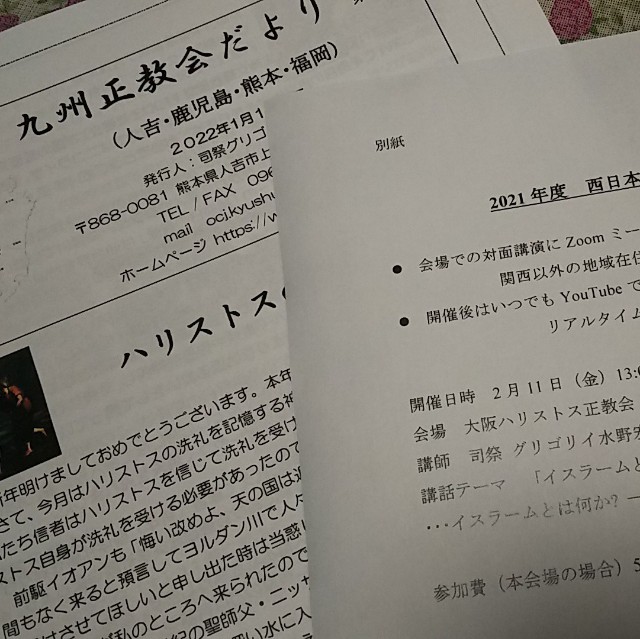 九州正教会だより
(人吉・鹿児島・熊本・福岡)
2022年1月1
発行人:司祭グリゴ
〒868-0081 熊本県人吉市上
TEL / FAX 096
mail ocj.kyushu
ホームページ https://w
ハリストスの
年明けましておめでとうございます。本年
さて、今月はハリストスの洗礼を記憶する祭
たち信者はハリストスを信じて洗礼を受け
ストス自身が洗礼を受ける必要があったので
前駆イオアンも「悔い改めよ、天の国は近
間もなく来ると預言してヨルダン川で人々
はさせてほしいと申し出た時は当惑し
が私のところへ来られたので
紀の聖師父・ニッサ
い水に入
別紙
2021年度 西日本
● 会場での対面講演に Zoom ミー
関西以外の地域在住
● 開催後はいつでも YouTube で
リアルタイム
開催日時 2月11日(金)13:0
会場 大阪ハリストス正教会
講師 司祭 グリゴリイ水野宏
講話テーマ 「イスラームと
…イスラームとは何か? —
参加費(本会場の場合)5